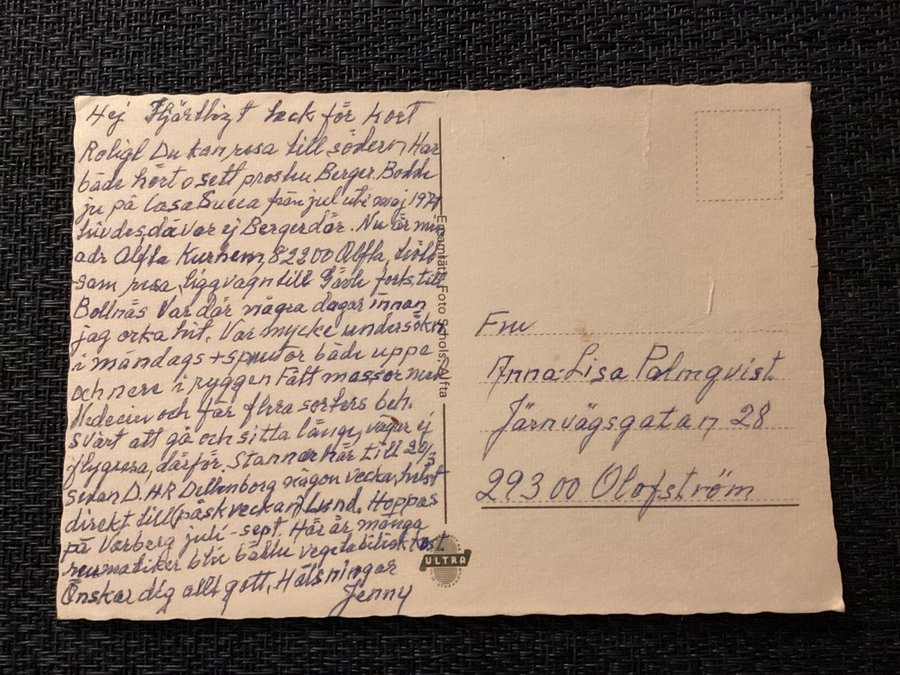 Hej Hjärtligt tack för kort
Roligt Du kan resa till södern, Har
både hört o sett prosten Berger Bodde
ju på Casa Sueca från jul
trivdes, då var ej Berger där. Nu är min
adr Alfta Kurhem, 82200 Alfta,
som resa, liggvagn till Gävle forts. till
Bollnäs Var där några dagar innan
jag orka hit. Var mycke undersökn
i måndags + sprutor både uppe
och nere i ryggen Fått massor med
Medecin och får flera sorters beh.
Svårt att gå och sitta länge, vågar ej
flygresa, därför. Stannar här till 29/3
sedan D.H.R Dellenborg någon vecka, helst
direkt till (påskveckan) Lund. Hoppas
på Varberg juli - sept, Här är många
reumatiker blir bättre vegetabilisk kost
Önskar dig allt gott, Hälsningar
Jenny
Ensamrätt: Foto Schols, Alfta
ULTRA
Fru
Anna Lisa Palmqvist
Järnvägsgatan 28
293 00 Olofström